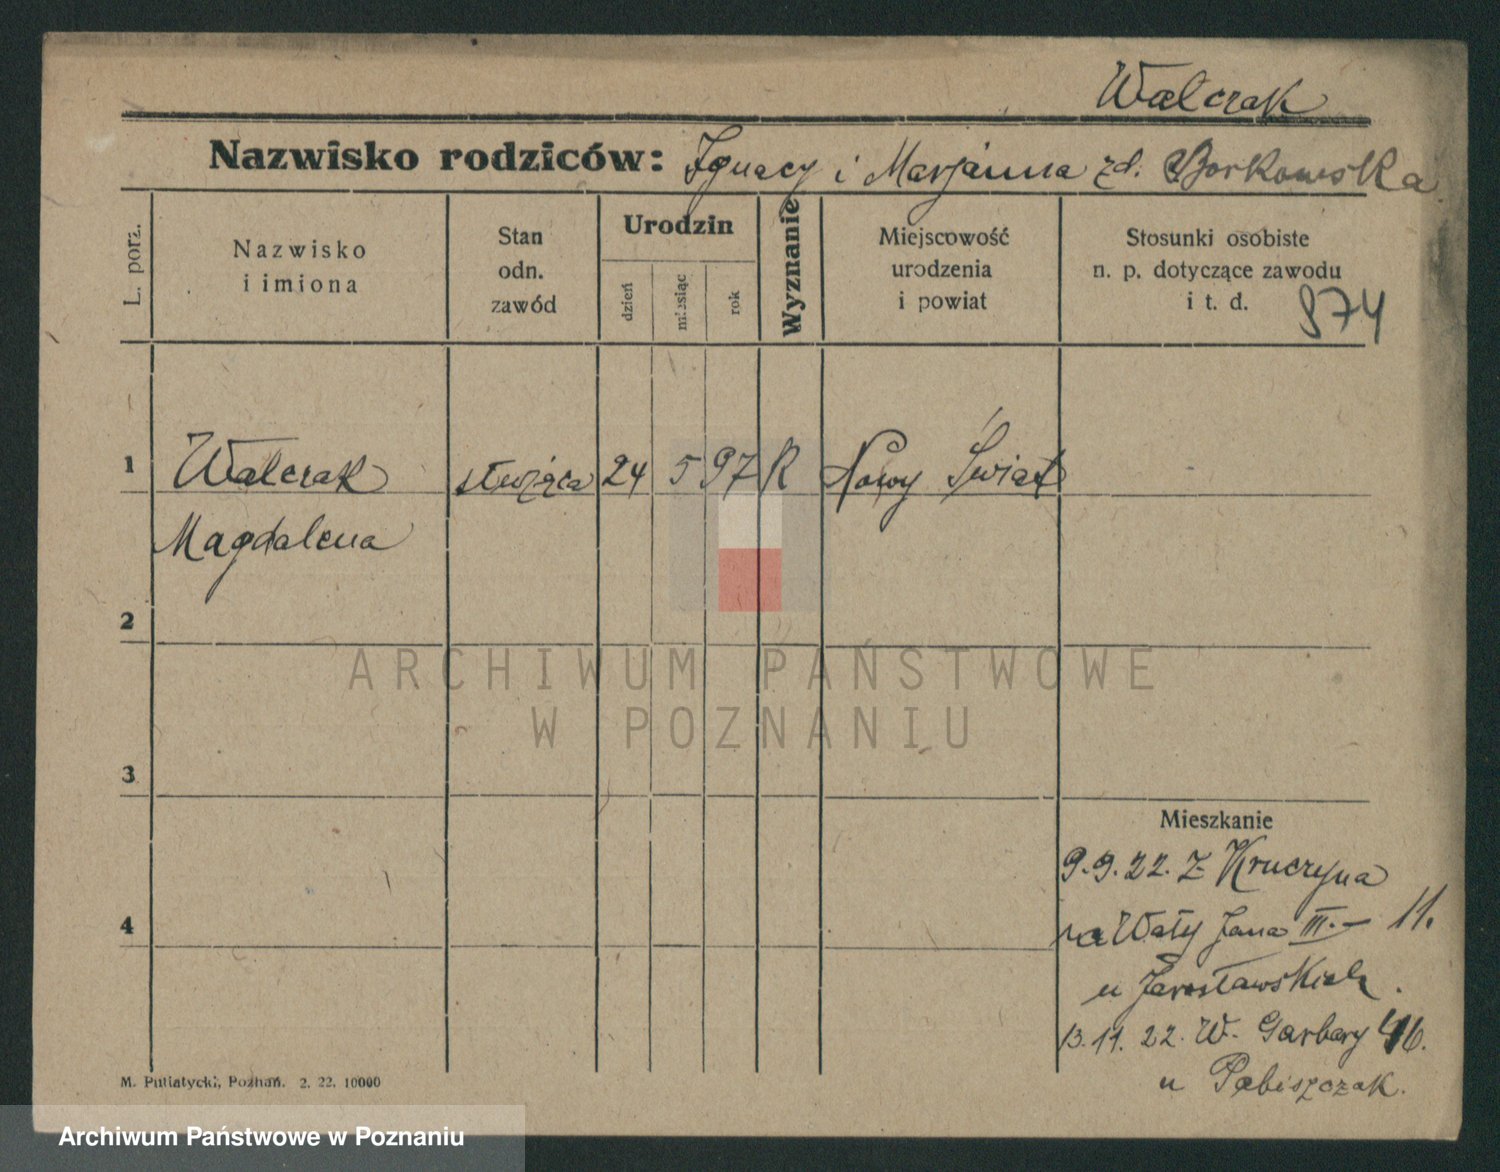 Walczak
Nazwisko rodziców: Ignacy i Marjanna zd. Borkowska
L. porz.
Nazwisko
i imiona
Stan
odn.
zawód
Urodzin
dzień
miesiąc
rok
Wyznanie
Miejscowość
urodzenia
i powiat
Stosunki osobiste
n. p. dotyczące zawodu
i t. d.
974
1 Walczak służąca 24 5 97 R Nowy Świat
Magdalena
2
3
4
Mieszkanie
9.9.22. Z Kruczyna
na Wały Jana III.- 11.
u Jarosławskich.
13.11.22. W. Garbary 46.
u Pabiszczak.
M. Putiatycki, Poznań. 2. 22. 10000
ARCHIWUM PAŃSTWOWE
W POZNANIU
Archiwum Państwowe w Poznaniu